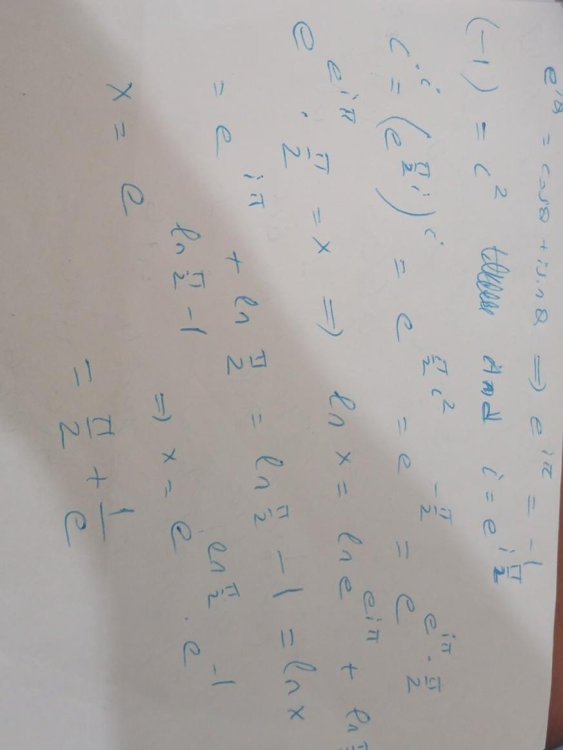 e^{iθ} = cosθ + i sinθ ⇒ e^{iπ} = -1
(-1) = i² And i = e^{i π/2}
i^i = (e^{π/2 i})^i = e^{π/2 i²} = e^{-π/2} = e^{e^{iπ} · π/2}
e^{e^{iπ}} · π/2 = x ⇒ ln x = ln e^{e^{iπ}} + ln π/2
= e^{iπ} + ln π/2 = ln π/2 - 1 = ln x
x = e^{ln π/2 - 1} ⇒ x = e^{ln π/2} · e^{-1}
= π/2 + 1/e